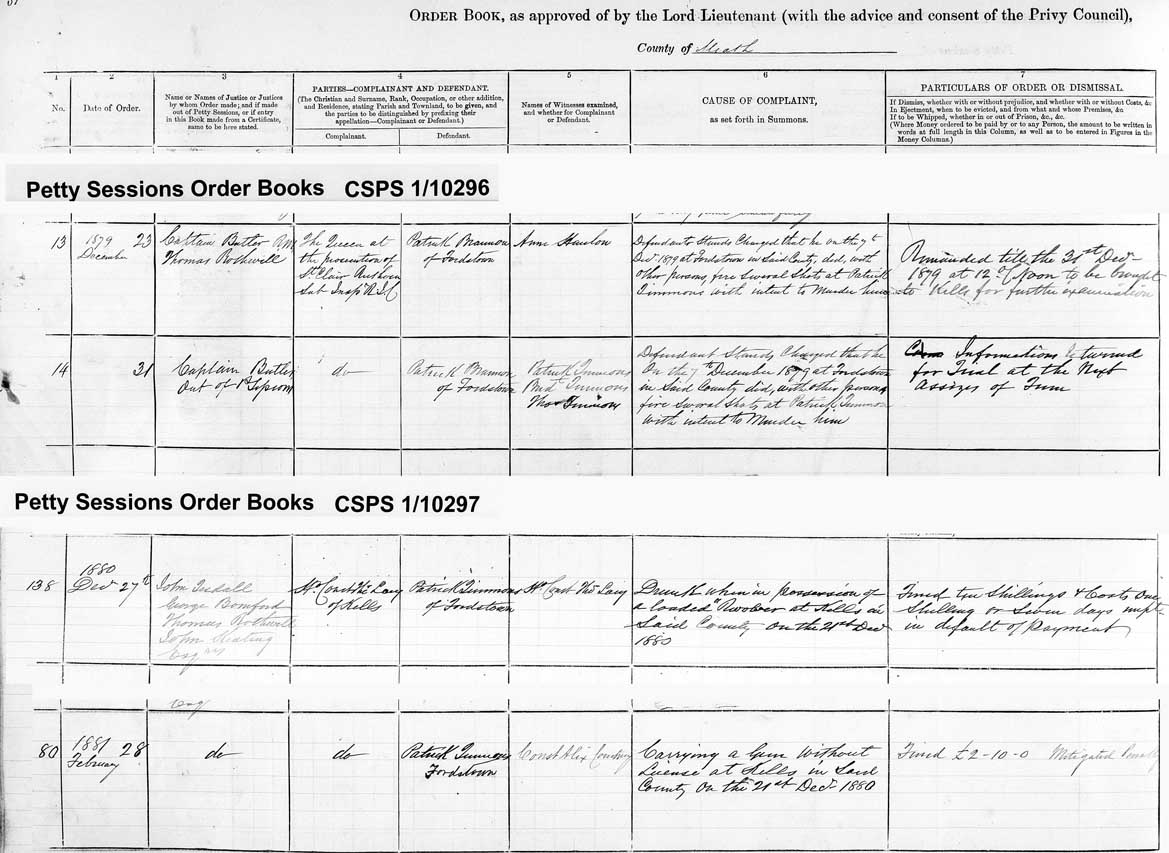 ORDER BOOK, as approved of by the Lord Lieutenant (with the advice and consent of the Privy Council),
County of Meath
1 2 3 4 5 6 7
No.
Date of Order.
Name or Names of Justice or Justices
by whom Order made; and if made
out of Petty Sessions, or if entry
in this Book made from a Certificate,
same to be here stated.
PARTIES—COMPLAINANT AND DEFENDANT.
(The Christian and Surname, Rank, Occupation, or other addition,
and Residence, stating Parish and Townland, to be given, and
the parties to be distinguished by prefixing their
appellation—Complainant or Defendant.)
Complainant. Defendant.
Names of Witnesses examined,
and whether for Complainant
or Defendant.
CAUSE OF COMPLAINT,
as set forth in Summons.
PARTICULARS OF ORDER OR DISMISSAL.
If Dismiss, whether with or without prejudice, and whether with or without Costs, &c
In Ejectment, when to be evicted, and from what and whose Premises, &c
If to be Whipped, whether in or out of Prison, &c., &c.
(Where Money ordered to be paid by or to any Person, the amount to be written in
words at full length in this Column, as well as to be entered in Figures in the
Money Columns.)
Petty Sessions Order Books CSPS 1/10296
13
1879 23
December
Captain Butler RM
Thomas Rothwell
The Queen at
the prosecution of
St Clair
Sub Inspr R.I.C
Patrick Brannon
of Fordstown
Anne Hanlon
Defendant Stands Charged that he on the 7th
Decr 1879 at Fordstown in Said County, did, with
other persons, fire Several Shots at Patrick
Timmons with intent to Murder him
Remanded till the 31st Decr
1879 at 12 O'C Noon to be brought
to Kells for further examination
14
31
Captain Butler
Out of P Sessions
do
Patrick Brannon
of Fordstown
Patrick Timmons
Timmons
Thos Timmons
Defendant Stands Charged that he
On the 7th December 1879 at Fordstown
in Said County did, with other persons
fire Several Shots at Patrick Timmons
with intent to Murder him
Informations returned
for Trial at the Next
Assizes of Trim
Petty Sessions Order Books CSPS 1/10297
138
1880
Decr 27th
John Tisdall
George Bomford
Thomas Rothwell
John Keating
Esqrs
Hd Const Thos Lacy
of Kells
Patrick Timmons
of Fordstown
Hd Const Thos Lacy
Drunk when in possession of
a loaded Revolver at Kells in
Said County On the 21st Decr
1880
Fined ten Shillings & Costs One
Shilling or Seven days impt
in default of Payment
80
1881 28
February
do
do
Patrick Timmons
Fordstown
Const Alix
Carrying a Gun Without
License at Kells in Said
County On the 21st Decr 1880
Fined £2-10-0 Mitigated Penalty